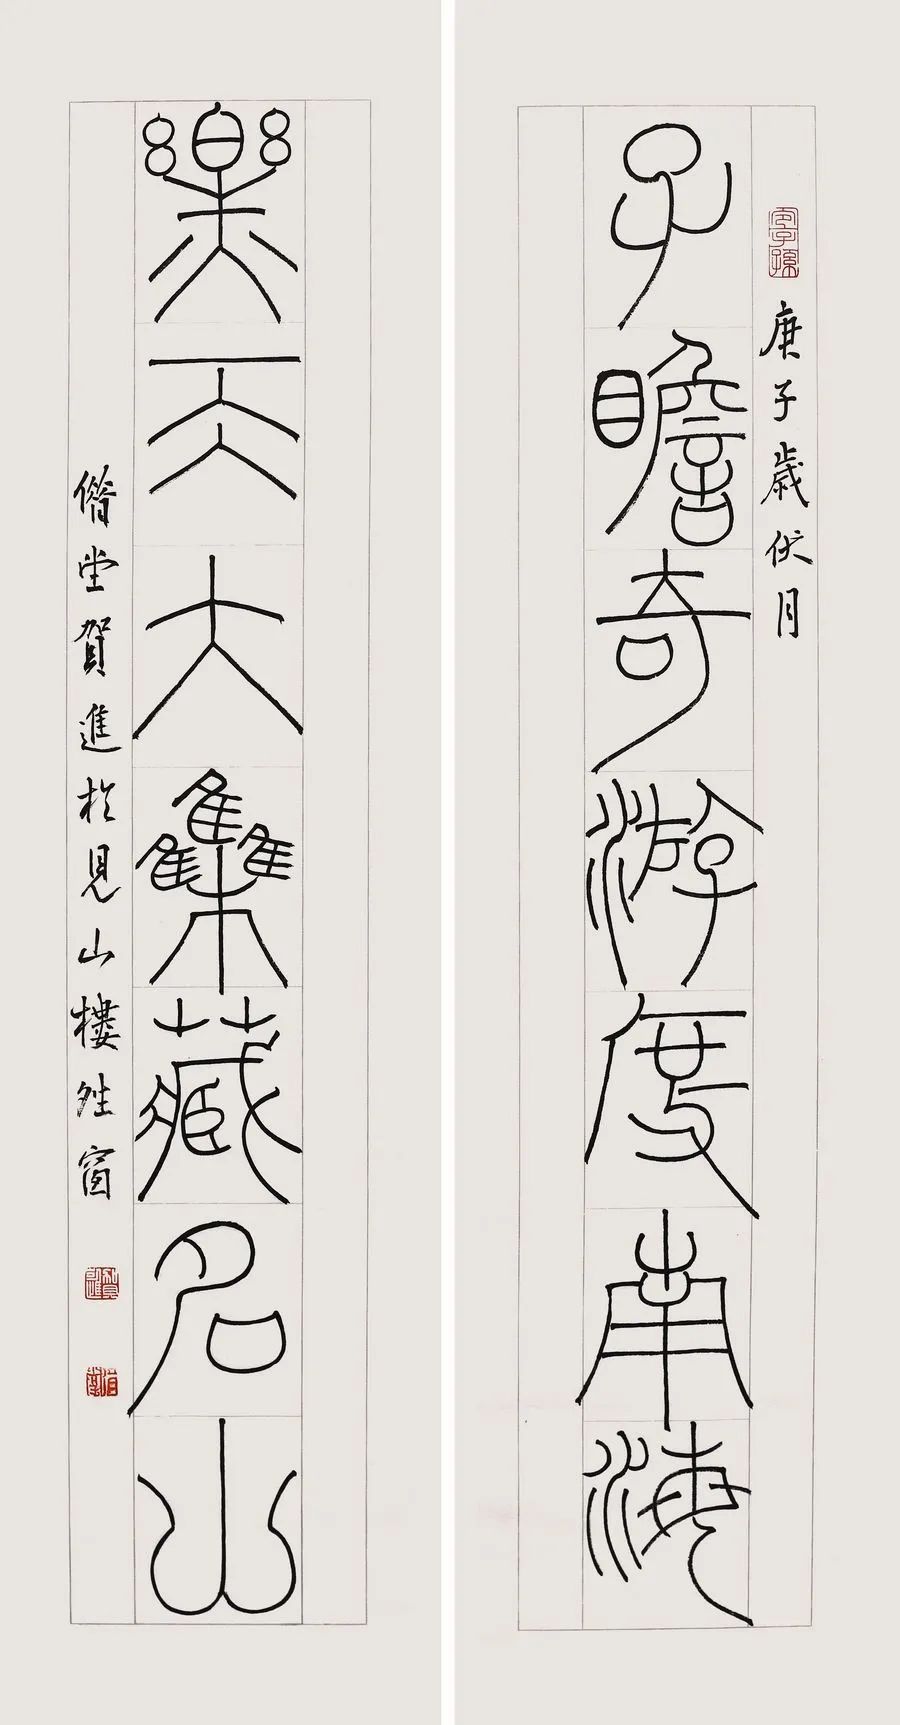 庚子歲伏月
子瞻奇游度南海
樂天大集藏名山
堂賀進於見山樓夝窗